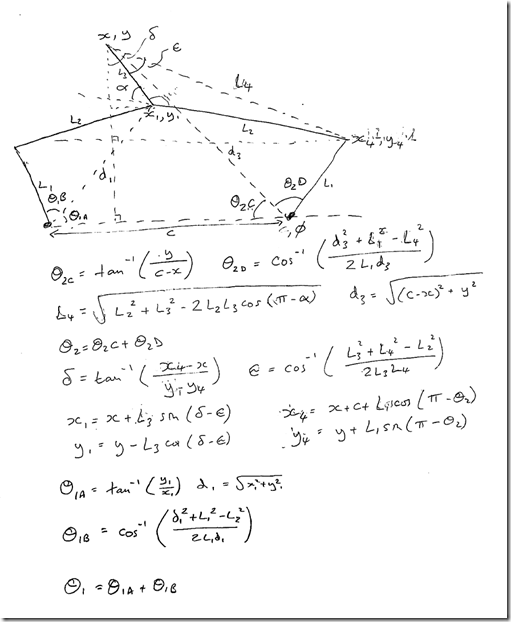 x, y δ
ε
L₃ L₄
α
x₁, y₁
L₂ L₂
x₄, y₄
d₁ d₃
L₁ θ₁B θ₂D L₁
θ₁A θ₂C
, φ
c
θ₂C = tan⁻¹ (y / (c-x)) θ₂D = cos⁻¹ ((d₃² + L₁² - L₄²) / (2L₁d₃))
L₄ = √(L₂² + L₃² - 2L₂L₃cos(π-α)) d₃ = √((c-x)² + y²)
θ₂ = θ₂C + θ₂D
δ = tan⁻¹ ((x₄-x) / (y-y₄)) ε = cos⁻¹ ((L₃² + L₄² - L₂²) / (2L₃L₄))
x₁ = x + L₃ sin (δ-ε) x₄ = x + c + L₁cos (π-θ₂)
y₁ = y - L₃ cos (δ-ε) y₄ = y + L₁ sin (π-θ₂)
θ₁A = tan⁻¹ (y₁/x₁) d₁ = √(x₁² + y₁²)
θ₁B = cos⁻¹ ((d₁² + L₁² - L₂²) / (2L₁d₁))
θ₁ = θ₁A + θ₁B